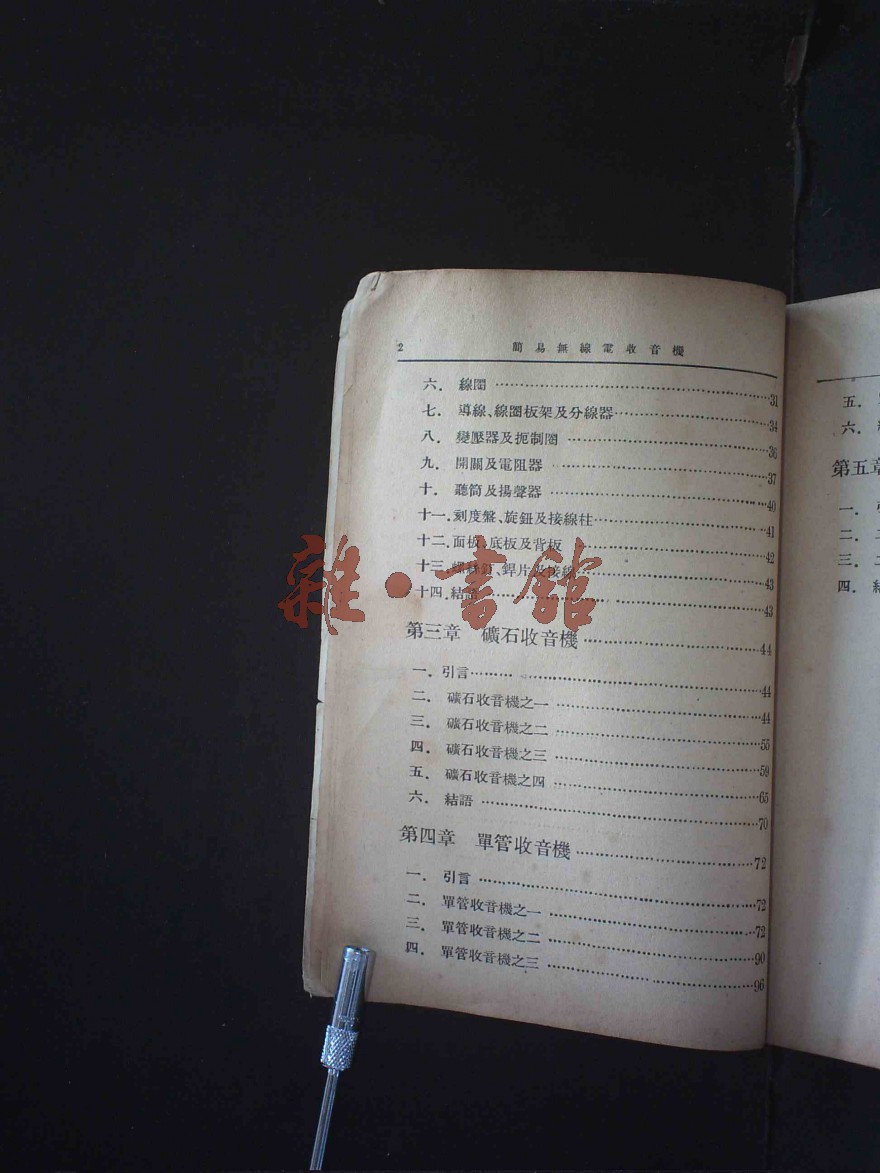 2 簡易無線電收音機
六. 線圈 31
七. 導線、線圈板架及分線器 34
八. 變壓器及扼制圈 36
九. 開關及電阻器 37
十. 聽筒及揚聲器 40
十一. 刻度盤、旋鈕及接線柱 41
十二. 面板、底板及背板 42
十三. 螺絲釘、銲片及接線 43
十四. 結語 43
第三章 礦石收音機 44
一. 引言 44
二. 礦石收音機之一 44
三. 礦石收音機之二 55
四. 礦石收音機之三 59
五. 礦石收音機之四 65
六. 結語 70
第四章 單管收音機 72
一. 引言 72
二. 單管收音機之一 72
三. 單管收音機之二 90
四. 單管收音機之三 96
雜·書館
五.
六.
第五章
一. 引
二.
三.
四. 結